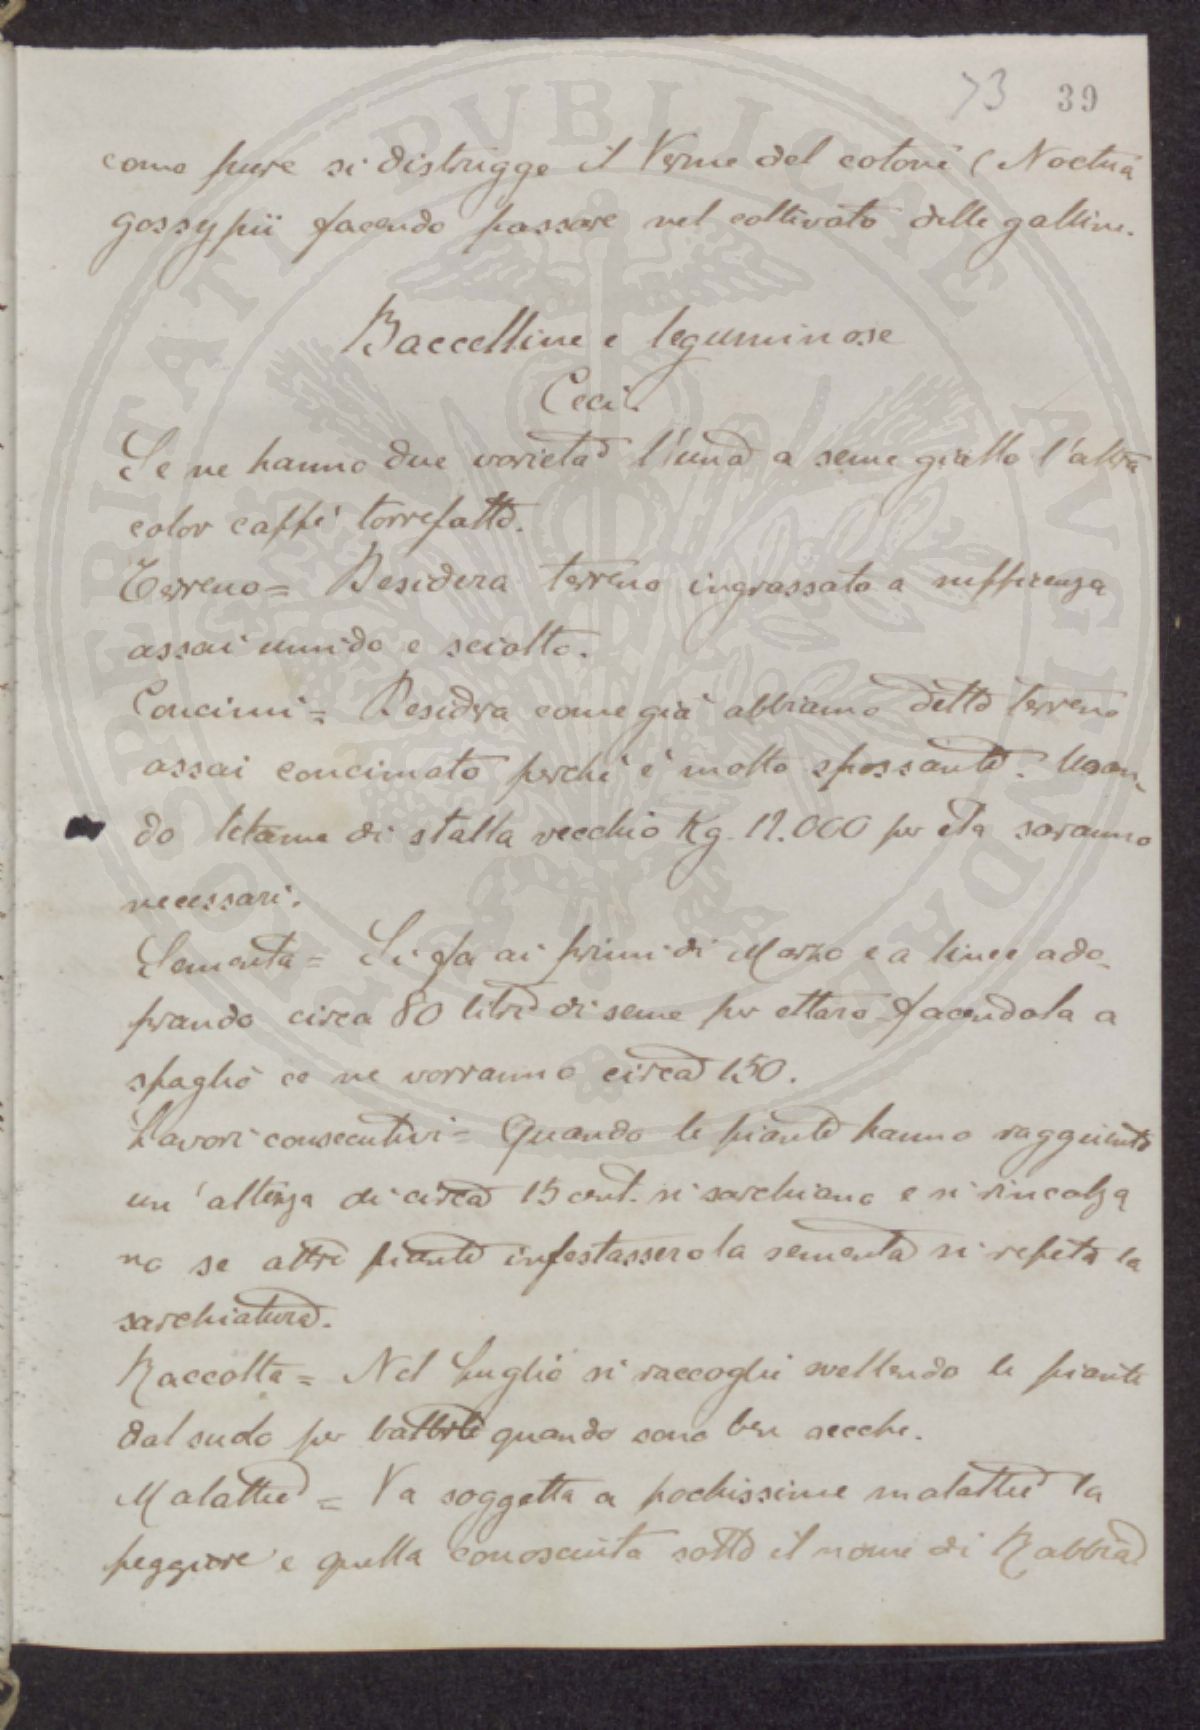 73 39
come pure si distrugge il Verme del cotone (Noctua
gossypii facendo passare nel coltivato delle galline.
Baccelline e leguminose
Ceci.
Se ne hanno due varietà l'una a seme giallo l'altra
color caffè torrefatto.
Terreno = Desidera terreno ingrassato a sufficenza
assai umido e sciolto.
Concimi = Desidera come già abbiamo detto terreno
assai concimato perchè è molto spossante. Usan-
do letame di stalla vecchio Kg. 12.000 per eta saranno
necessari.
Sementa = Si fa ai primi di Marzo e a linee ado-
prando circa 80 litri di seme per ettaro facendola a
spaglio ce ne vorranno circa 150.
Lavori consecutivi = Quando le piante hanno raggiunto
un'altezza di circa 15 cent. si sarchiano e si rincalza
no se altre piante infestassero la sementa si repeta la
sarchiatura.
Raccolta = Nel Luglio si raccoglie svellendo le piante
dal suolo per batterle quando sono ben secche.
Malattie = Va soggetta a pochissime malattie la
peggiore e quella conosciuta sotto il nome di Rabbia
PVBLICAE AVGENDAE
PROSPERITATI